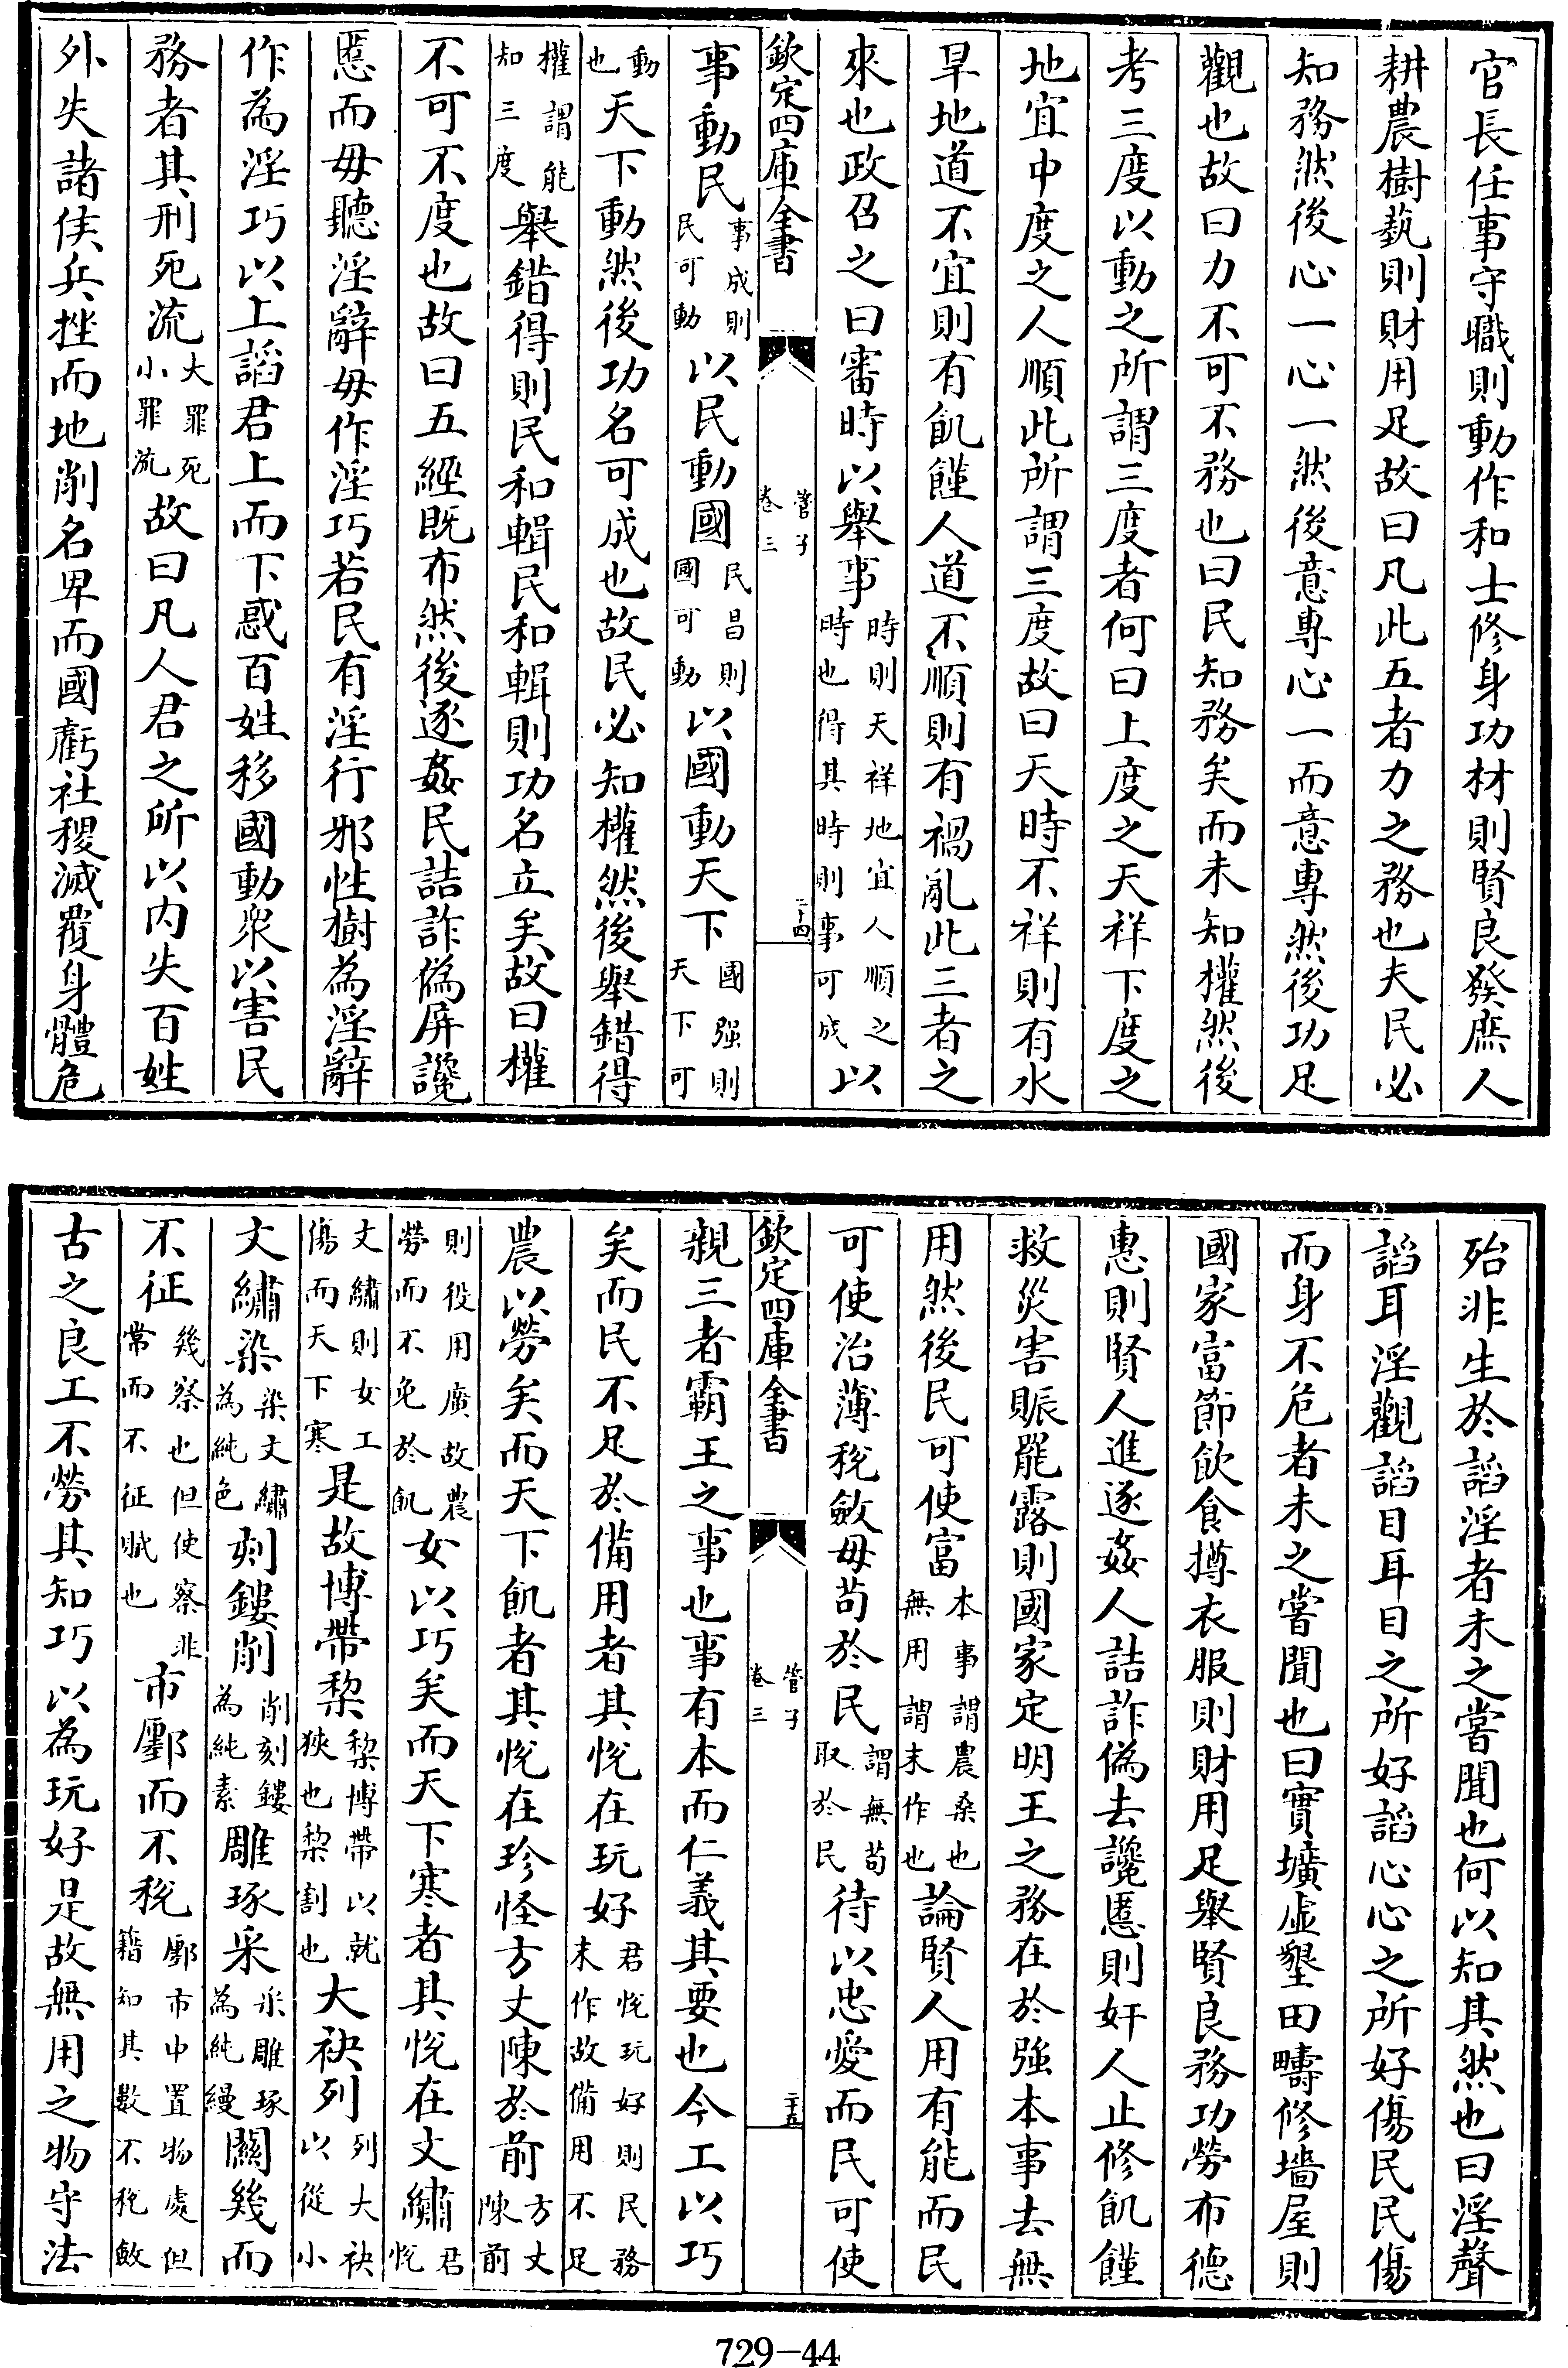 官長任事守職則動作和士修身功材則賢良發庶人
耕農樹藝則財用足故曰凡此五者力之務也夫民必
知務然後心一心一然後意專心一而意專然後功足
觀也故曰力不可不務也曰民知務矣而未知權然後
考三度以動之所謂三度者何曰上度之天祥下度之
地宜中度之人順此所謂三度故曰天時不祥則有水
旱地道不宜則有飢饉人道不順則有禍亂此三者之
來也政召之曰審時以舉事時則天祥地宜人順之以時也得其時則事可成以
欽定四庫全書 管子卷三 二十四
事動民事成則民可動以民動國民昌則國可動以國動天下國强則天下可
動也天下動然後功名可成也故民必知權然後舉錯得
權謂能知三度舉錯得則民和輯民和輯則功名立矣故曰權
不可不度也故曰五經既布然後逐姦民詰詐偽屏讒
慝而毋聽淫辭毋作淫巧若民有淫行邪性樹為淫辭
作為淫巧以上謟君上而下惑百姓移國動衆以害民
務者其刑死流大罪死小罪流故曰凡人君之所以内失百姓
外失諸侯兵挫而地削名卑而國虧社稷滅覆身體危
殆非生於謟淫者未之嘗聞也何以知其然也曰淫聲
謟耳淫觀謟目耳目之所好謟心心之所好傷民民傷
而身不危者未之嘗聞也曰實壙虛墾田疇修墻屋則
國家富節飲食撙衣服則財用足舉賢良務功勞布德
惠則賢人進逐姦人詰詐偽去讒慝則奸人止修飢饉
救災害賑罷露則國家定明王之務在於強本事去無
用然後民可使富本事謂農桑也無用謂末作也論賢人用有能而民
可使治薄稅斂毋苟於民謂無苟取於民待以忠愛而民可使
欽定四庫全書 管子卷三 二十五
親三者霸王之事也事有本而仁義其要也今工以巧
矣而民不足於備用者其悅在玩好君悅玩好則民務末作故備用不足
農以勞矣而天下飢者其悅在珍怪方丈陳於前方丈陳前
則役用廣故農勞而不免於飢女以巧矣而天下寒者其悅在文繡君悅
文繡則女工傷而天下寒是故博帶棃棃博帶以就狹也棃割也大袂列列大袂以從小
文繡染染文繡為純色刻鏤削削刻鏤為純素雕琢采采雕琢為純縵關幾而
不征幾察也但使察非常而不征賦也市鄽而不稅鄽市中置物處但籍知其數不稅斂
古之良工不勞其知巧以為玩好是故無用之物守法
729-44